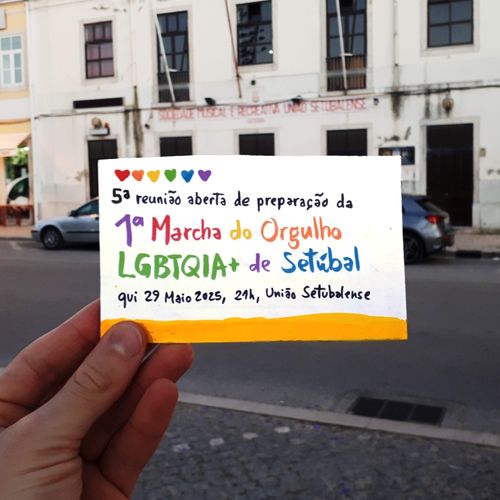 SOCIEDADE MUSICAL E RECREATIVA UNIÃO SETUBALENSE
5ª reunião aberta de preparação da
1ª Marcha do Orgulho
LGBTQIA+ de Setúbal
qui 29 Maio 2025, 21h, União Setubalense